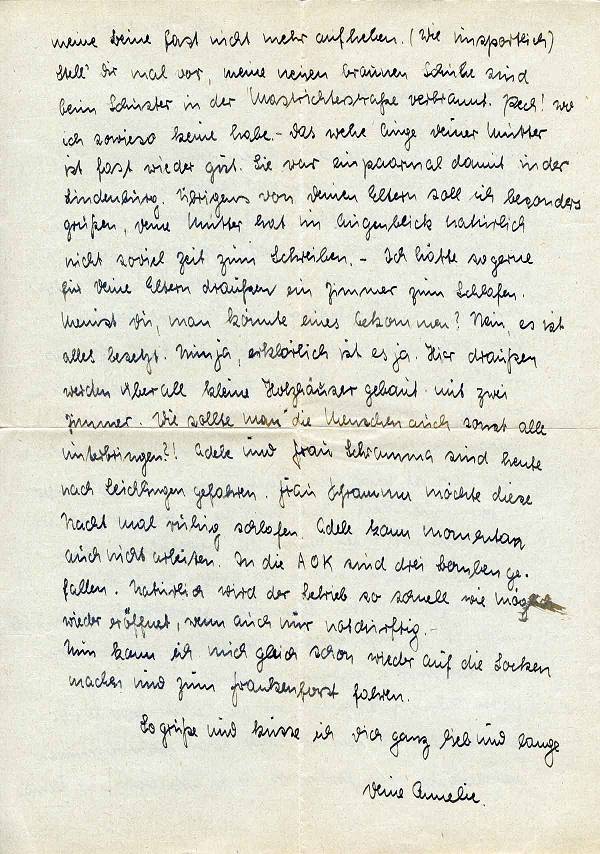 meine Beine fast nicht mehr aufheben. (Wie unsportlich)
Stell' Dir mal vor, meine neuen braunen Schuhe sind
beim Schuster in der Mastrichtestraße verbrannt. Pech! wo
ich sowieso keine habe. - Das wehe Auge Deiner Mutter
ist fast wieder gut. Sie war ein paarmal damit in der
Lindenburg. Übrigens von Deinen Eltern soll ich besonders
grüßen, Deine Mutter hat im Augenblick natürlich
nicht soviel Zeit zum Schreiben. - Ich hätte so gerne
für Deine Eltern draußen ein Zimmer zum Schlafen.
Meinst Du, man könnte eines bekommen? Nein, es ist
alles besetzt. Nun ja, erklärlich ist es ja. Hier draußen
werden überall kleine Holzhäuser gebaut mit zwei
Zimmer. Wie sollte man die Menschen auch sonst alle
unterbringen?! Adele und Frau Schramma sind heute
nach Leichlingen gefahren. Frau Schramm möchte diese
Nacht mal ruhig schlafen. Adele kann momentan
auch nicht arbeiten. In die AOK sind drei Bomben ge-
fallen. Natürlich wird der Betrieb so schnell wie möglich
wieder eröffnet, wenn auch nur notdürftig. -
Nun kann ich mich gleich schon wieder auf die Socken
machen und zum Frankenforst fahren.
So grüße und küsse ich Dich ganz lieb und lange
Deine Annelie.